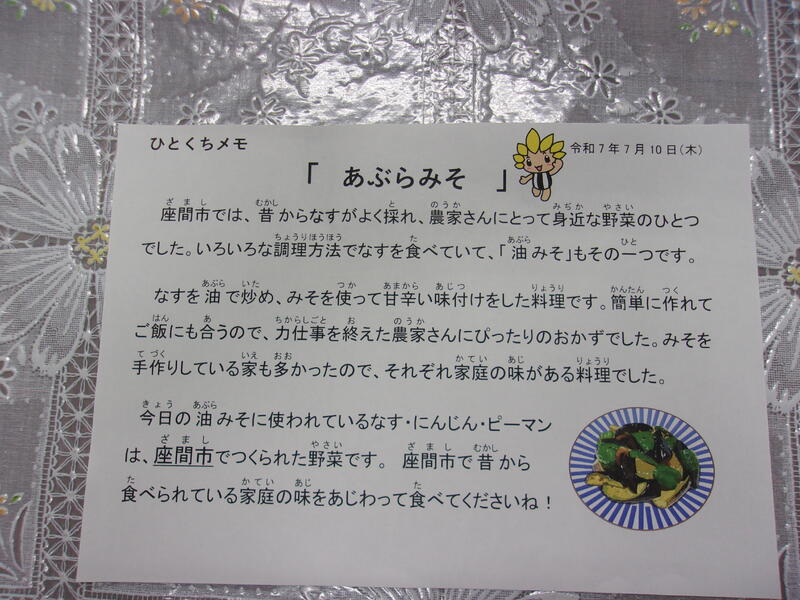 ひとくちメモ
令和7年7月10日(木)
「 あぶらみそ 」
座間市では、昔からなすがよく採れ、農家さんにとって身近な野菜のひとつ
でした。いろいろな調理方法でなすを食べていて、「油みそ」もその一つです。
なすを油で炒め、みそを使って甘辛い味付けをした料理です。簡単に作れて
ご飯にも合うので、力仕事を終えた農家さんにぴったりのおかずでした。みそを
手作りしている家も多かったので、それぞれ家庭の味がある料理でした。
今日の油みそに使われているなす・にんじん・ピーマン
は、座間市でつくられた野菜です。 座間市で昔から
食べられている家庭の味をあじわって食べてくださいね!